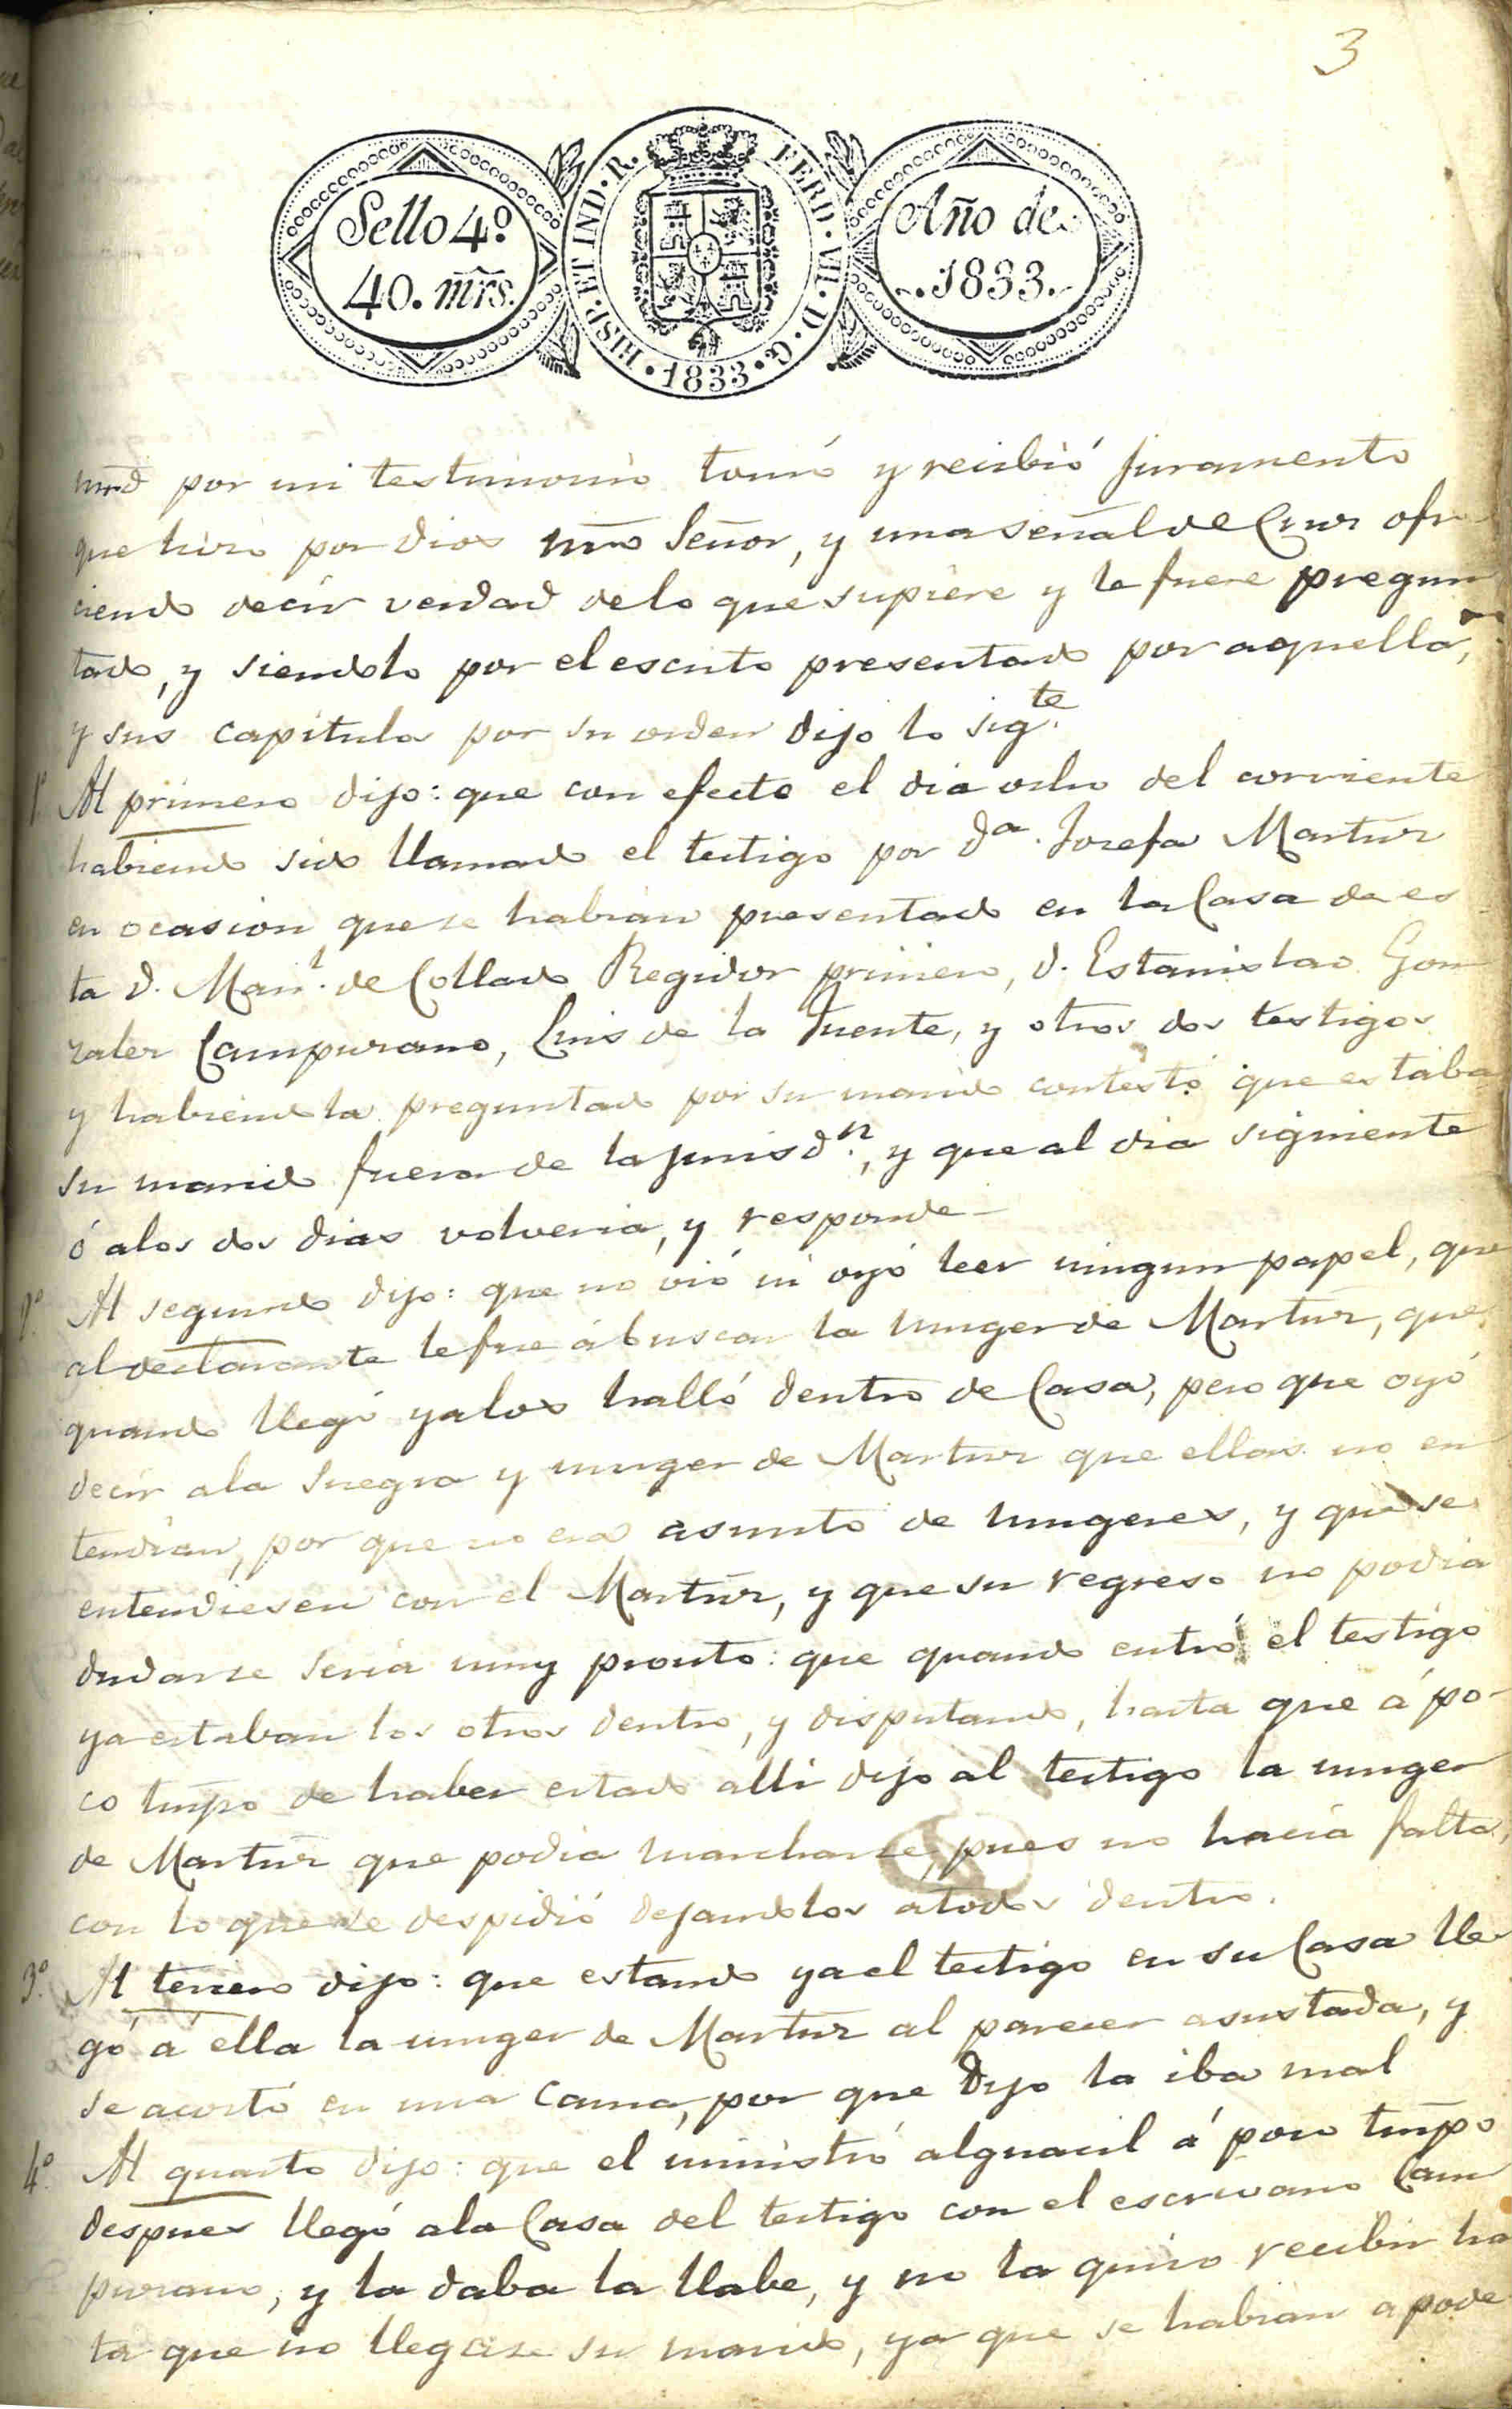 3
Sello 4º
40. mrs.
HISP. ET IND. R. FERD. VII. D. G. 1833.
Año de
1833.
mrd por mi testimonio tomó y recibió juramento
que hizo por Dios nro Señor, y una señal de Cruz ofre
ciendo decir verdad de lo que supiere y le fuere pregun
tado, y siendolo por el escrito presentado por aquella,
y sus capitulos por su orden dijo lo sigte.
1º Al primero dijo: que con efecto el dia ocho del corriente
habiendo sido llamado el testigo por Dª. Josefa Martinz
en ocasion que se habian presentado en la Casa de es
ta D. Manl. de Collado Regidor primero, D. Estanislao Gon
zalez Campurano, Luis de la Fuente, y otros dos testigos
y habiendola preguntado por su marido contestó que estaba
su marido fuera de la jurisdn., y que al dia siguiente
ó alos dos dias volveria, y responde
2º Al segundo dijo: que no vió ni oyó leer ningun papel, que
al declarante le fue á buscar la muger de Martinz, que
quando llegó ya los halló dentro de Casa, pero que oyó
decir ala suegra y muger de Martinz que ellas no en
tendian, por que no era asunto de mugeres, y que se
entendiesen con el Martinz, y que su regreso no podia
dudarse seria muy pronto: que quando entró el testigo
ya estaban los otros dentro, y disputando, hasta que á po-
co tmpo de haber estado alli dijo al testigo la muger
de Martinz que podia marcharse, pues no hacia falta
con lo que se despidió dejandolos atodos dentro.
3º Al tercero dijo: que estando ya el testigo en su Casa lle
gó á ella la muger de Martinz al parecer asustada, y
se acostó en una cama, por que dijo la iba mal
4º Al quarto dijo: que el ministró alguacil á poco tmpo
despues llegó ala Casa del testigo con el escrivano Cam
purano, y la daba la llabe, y no la quiso recibir has
ta que no llegase su marido, ya que se habian apode